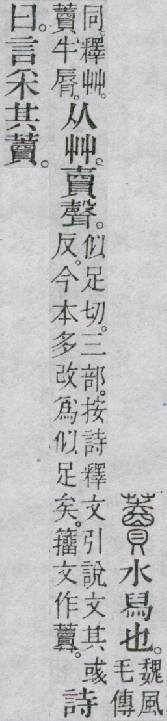 藚水舄也。魏風
毛傳
同釋艸。
藚牛脣。从艸。賣聲。似足切。三部。按詩釋文引說文其或
反。今本多改爲似足矣。籒文作藚。詩
曰。言采其藚。